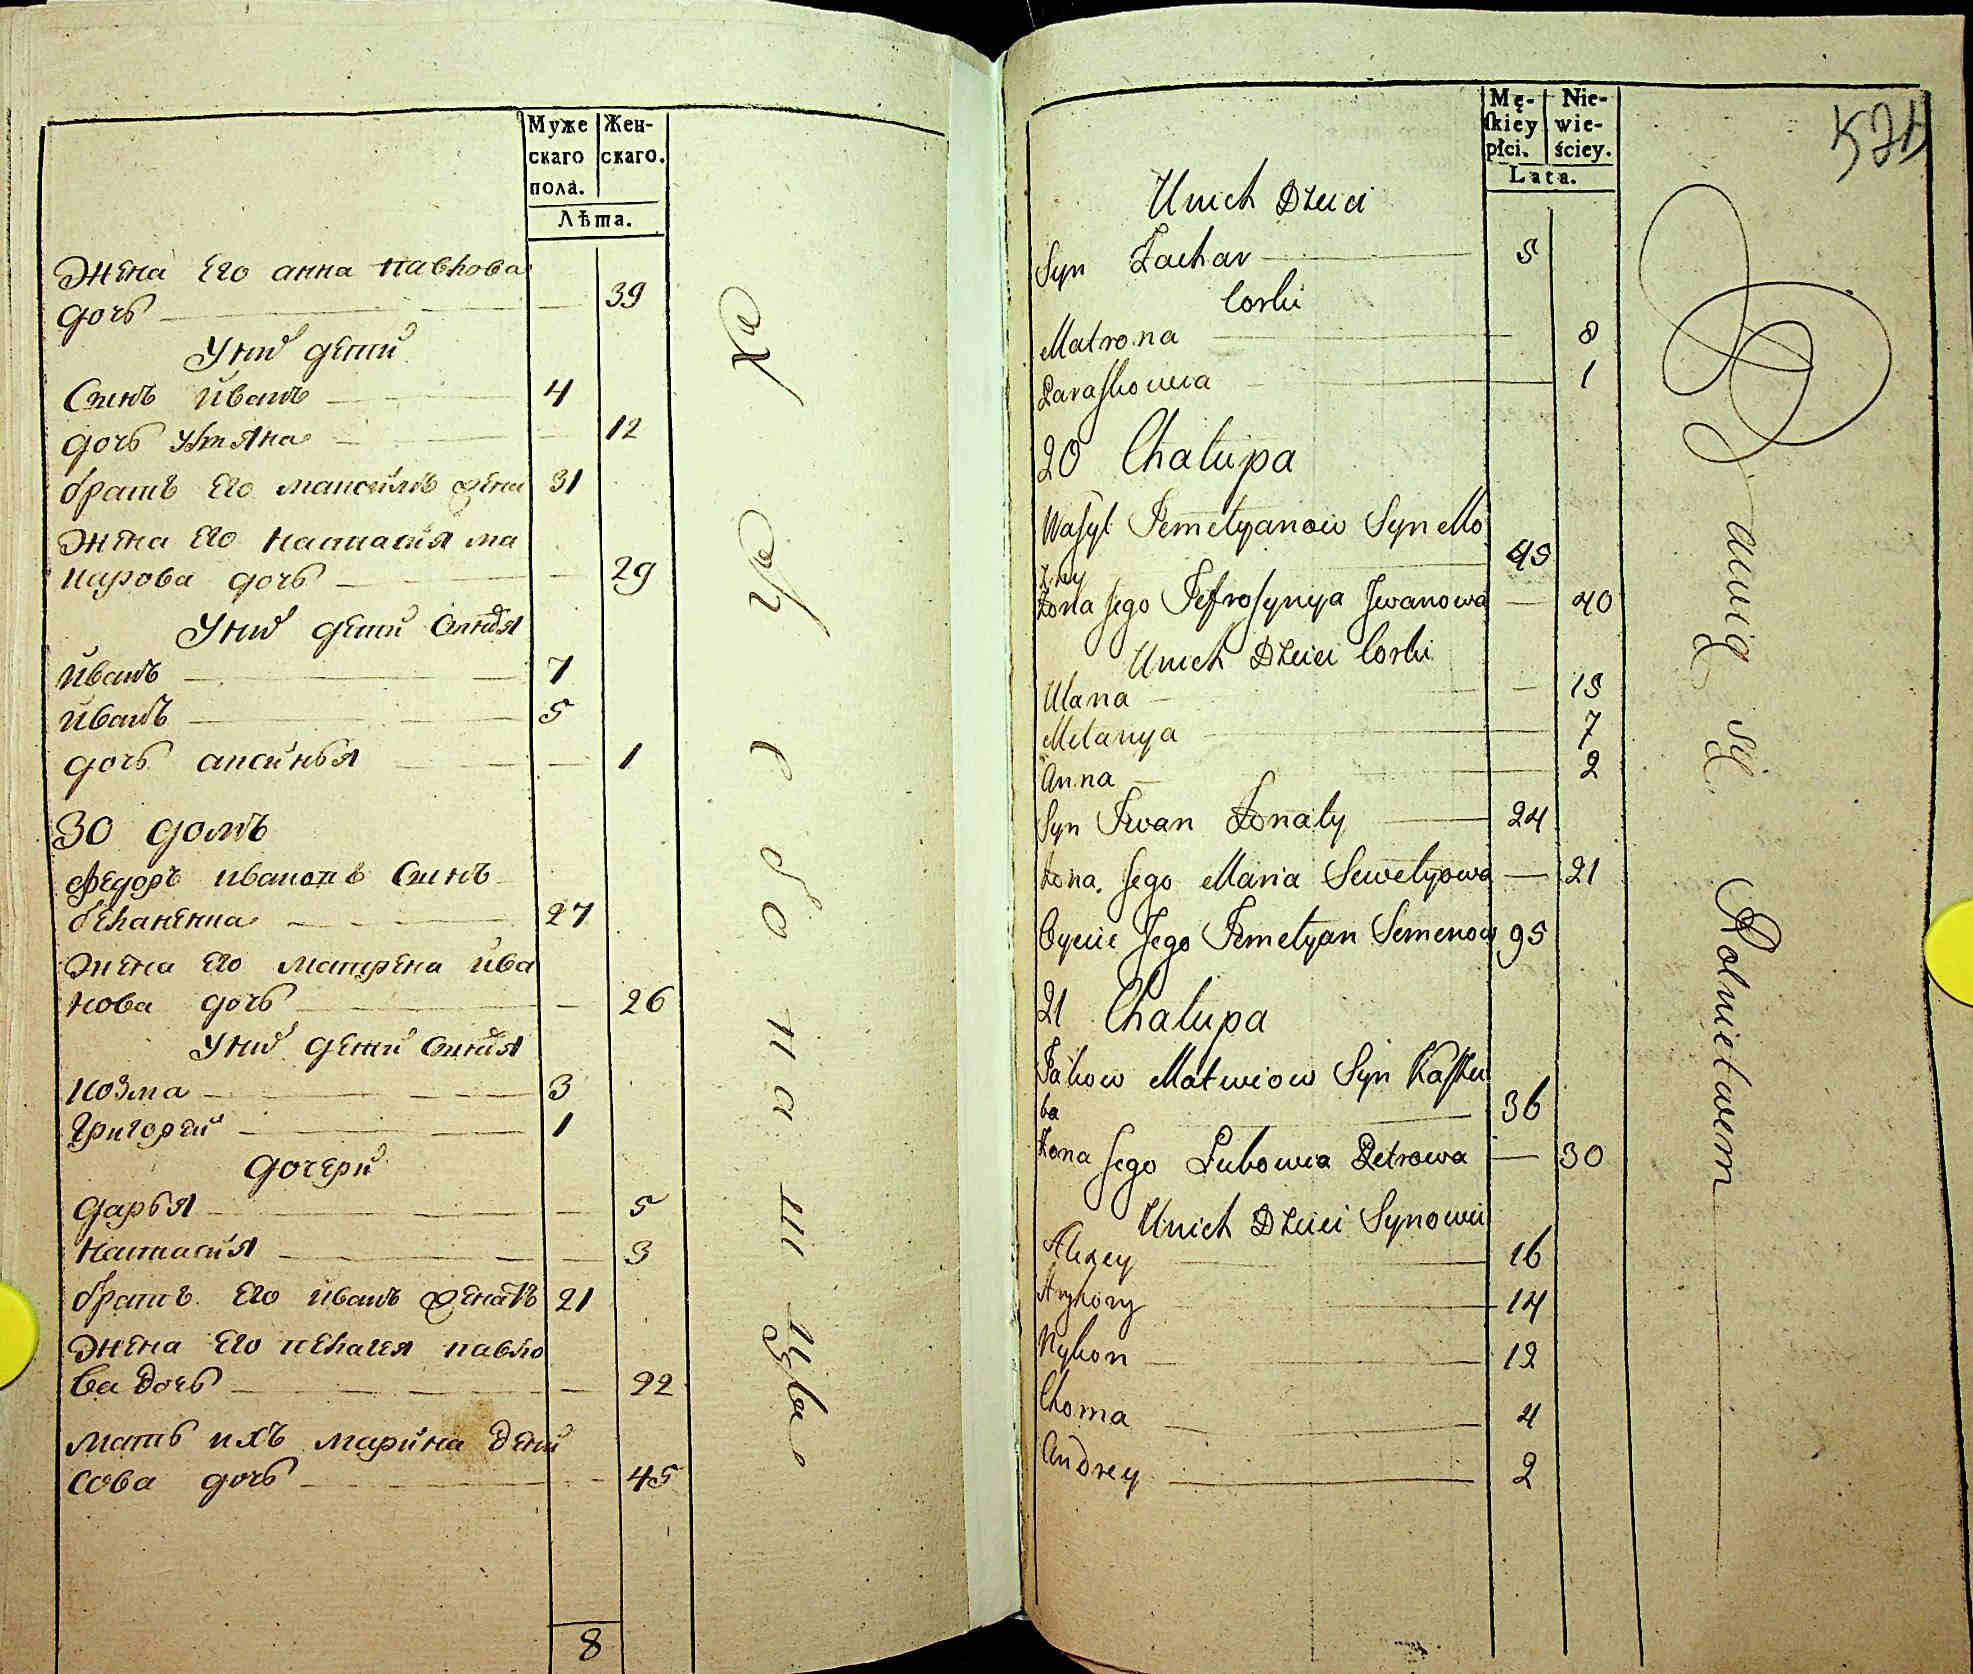 Муже
скаго
пола.
Жен-
скаго.
Лѣта.
Жена его анна павлова
дочь 39
У них детй
Синъ Иванъ 4
дочь Уляна 12
братъ его мансимъ жени 31
Жена его настасия ма
карова дочь 29
У них детй Синвя
Иванъ 7
Иванъ 5
дочь аксинья 1
30 домъ
Федоръ ивановъ Синъ
27
Жена его матрена ива
нова дочь 26
У них детй Синвя
козма 3
григорей 1
дочери
дарья 5
настасия 3
братъ его иванъ женатъ 21
Жена его пелагея павло
ва дочь 22
мать ихъ марина дени
сова дочь 45
8
Mę-
skiey
płci.
Nie-
wie-
ściey.
Lata.
571
Unich Dzieci
Syn Zachar 5
Corki
Matrona 8
Paraskowia 1
20 Chalupa
Wasyl Jemelyanow Syn Mo
zny 45
Zona Jego Jefrosynya Jwanowa 40
Unich Dzieci Corki
Ulana 15
Melanya 7
Anna 2
Syn Iwan Zonaty 24
Zona Jego Maria Sawelyowa 21
Oyciec Jego Jemelyan Semenow 95
21 Chalupa
Jakow Matwiow Syn Kasku
ba 36
Zona Jego Lubowia Petrowa 30
Unich Dzieci Synowie
Alexey 16
Hryhory 14
Nykon 12
Choma 4
Andrey 2
Bawią się Rolnictwem